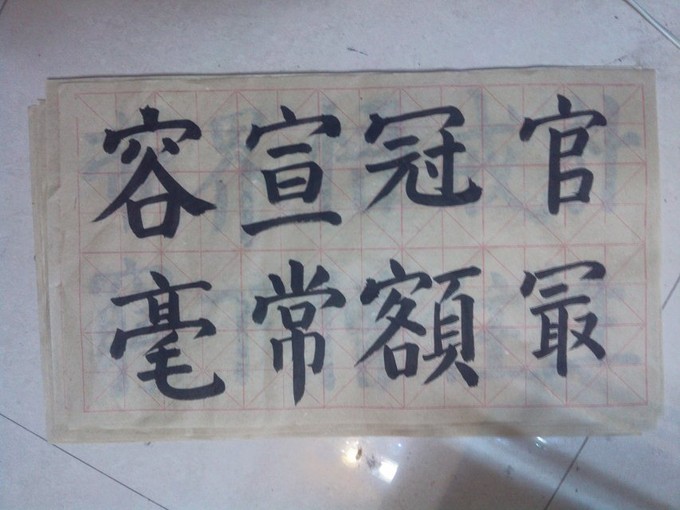 容宣冠官
毫常額冣